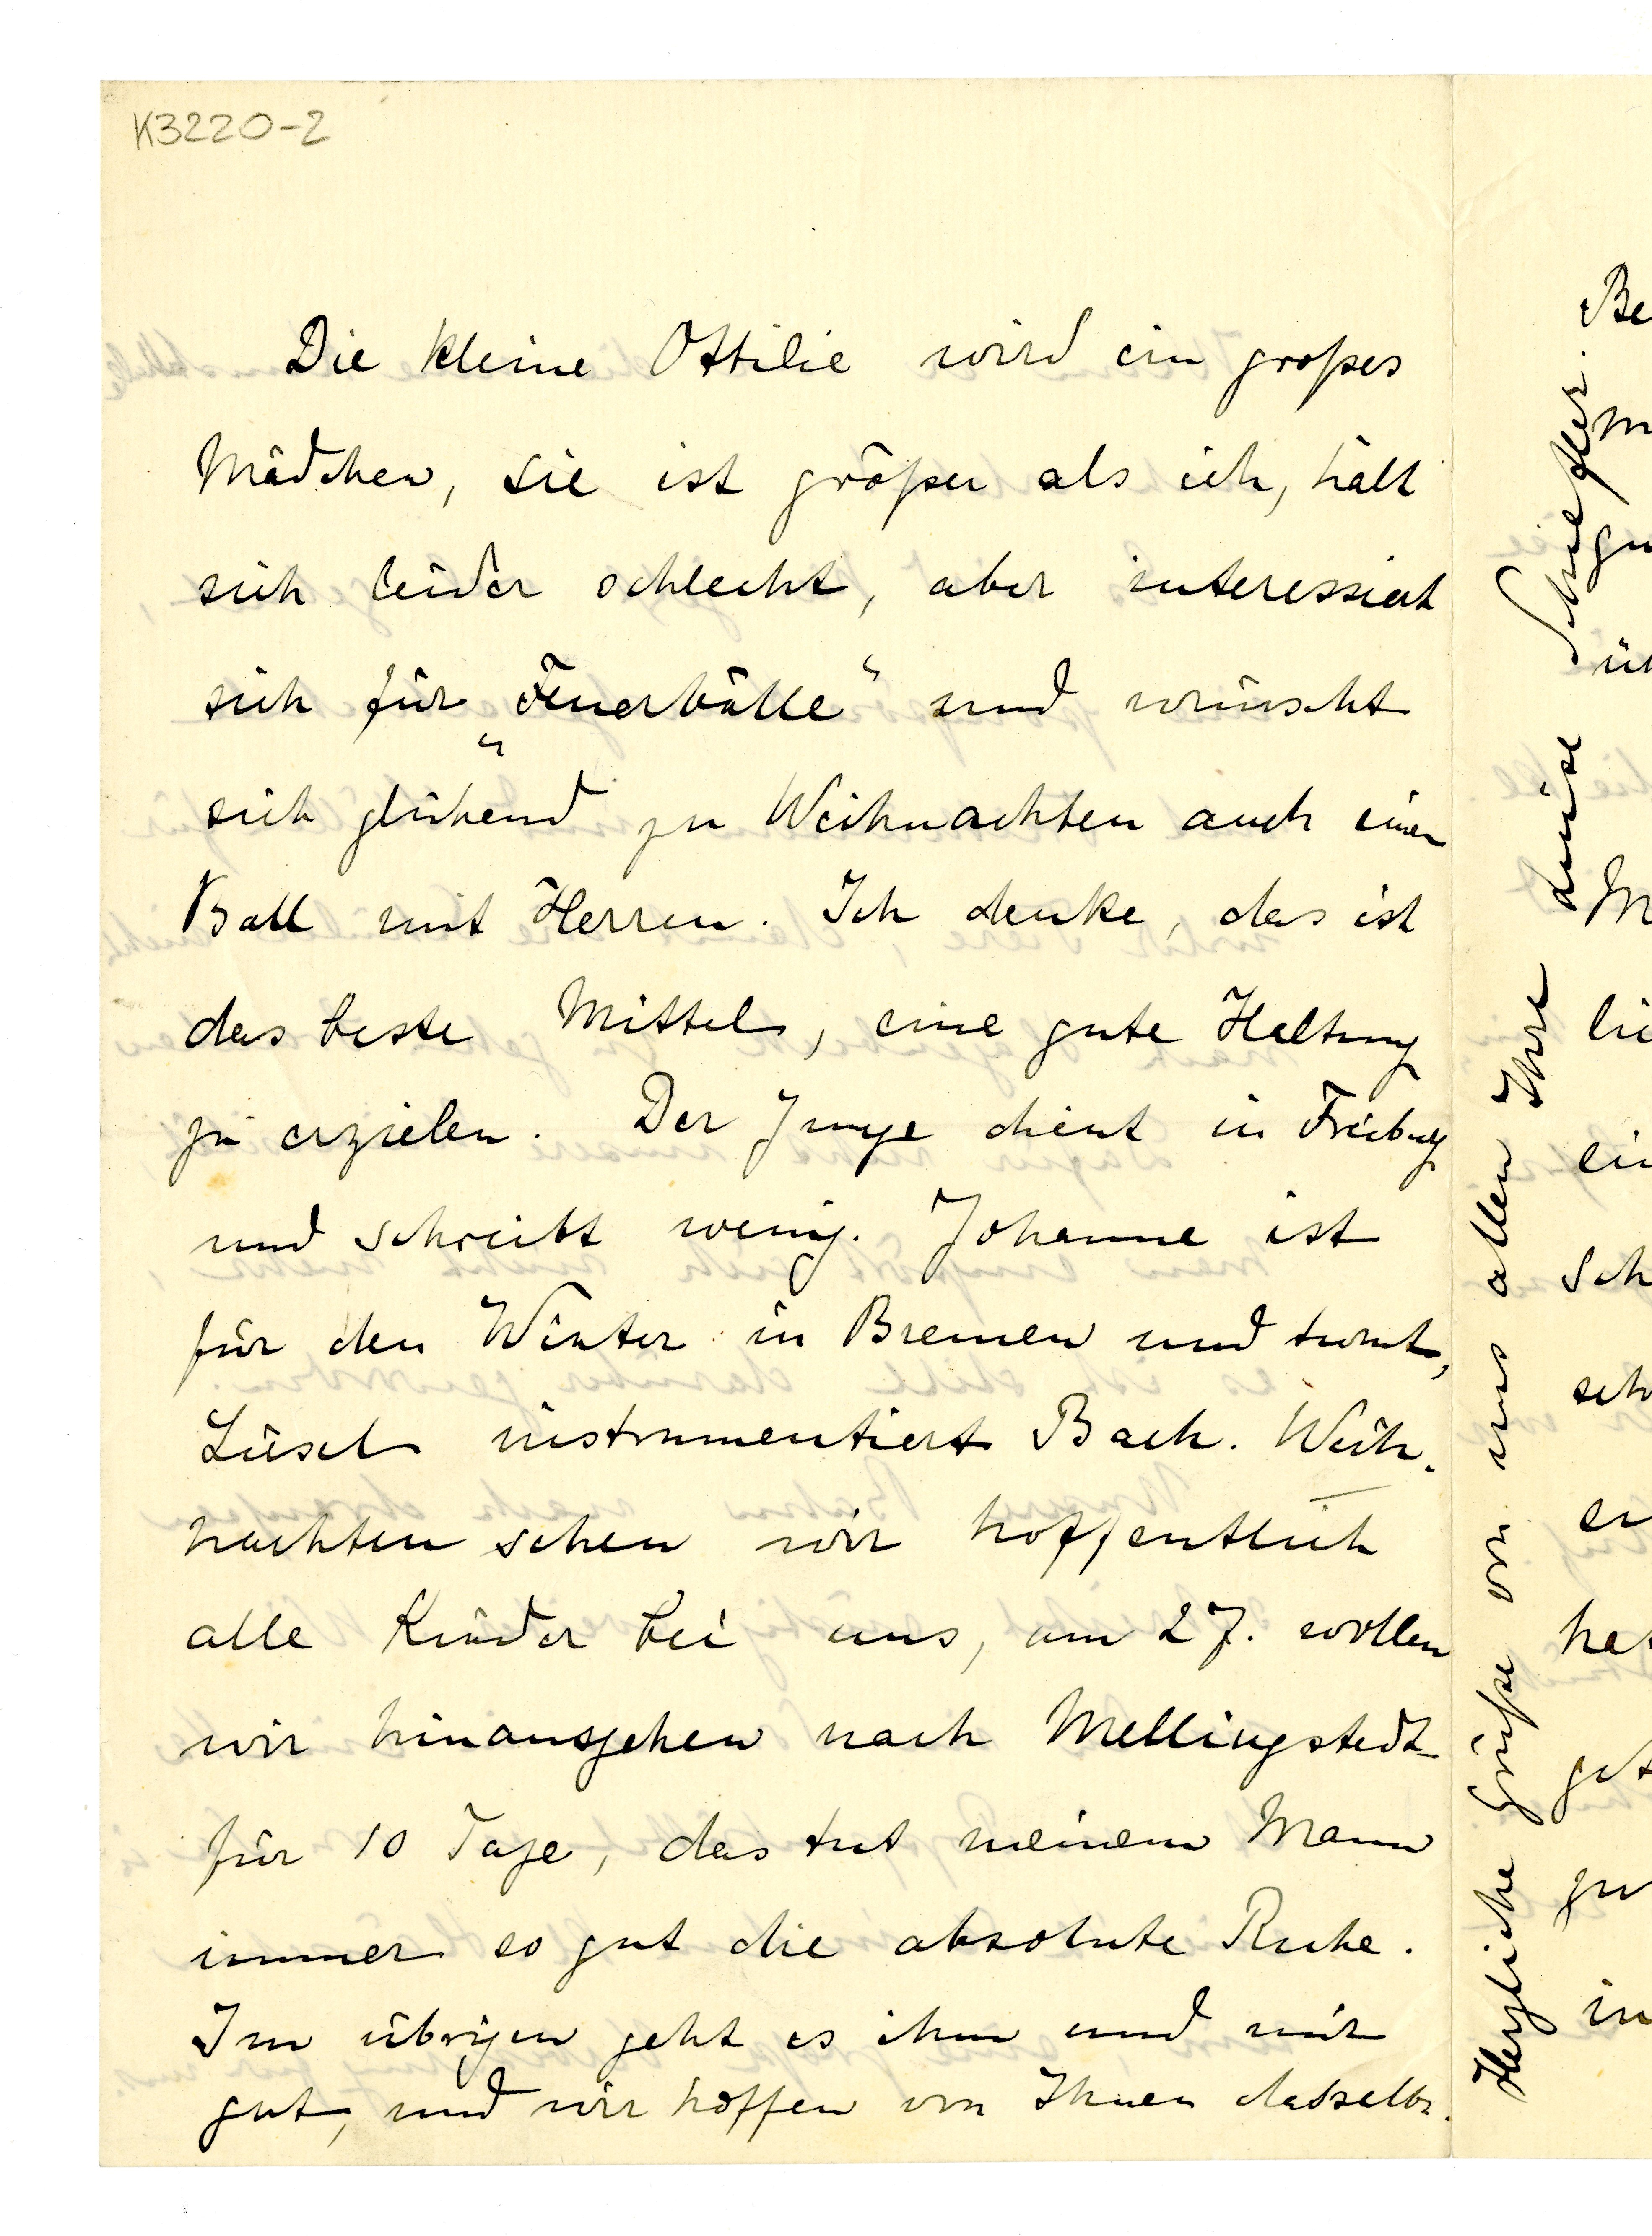 K3220-2
Die kleine Ottilie wird ein großes
Mädchen, sie ist größer als ich, hält
sich leider schlecht, aber interessiert
sich für „Feuerbälle“ und wünscht
sich glühend zu Weihnachten auch einen
Ball mit Herren. Ich denke, das ist
das beste Mittel, eine gute Haltung
zu erzielen. Der Junge dient in Freiburg
und schreibt wenig. Johanne ist
für den Winter in Bremen und turnt,
Liesel instrumentiert Bach. Weih-
nachten sehen wir hoffentlich
alle Kinder bei uns, am 27. wollen
wir hinausgehen nach Mellingstedt
für 10 Tage, das tut meinem Mann
immer so gut die absolute Ruhe.
Im übrigen geht es ihm und mir
gut, und wir hoffen von Ihnen dasselbe.
Herzliche Grüße von uns allen Ihre Luise Schiefler.
Be
m
gu
üb
M
lie
ein
Sch
sch
er
hat
get
zu
in